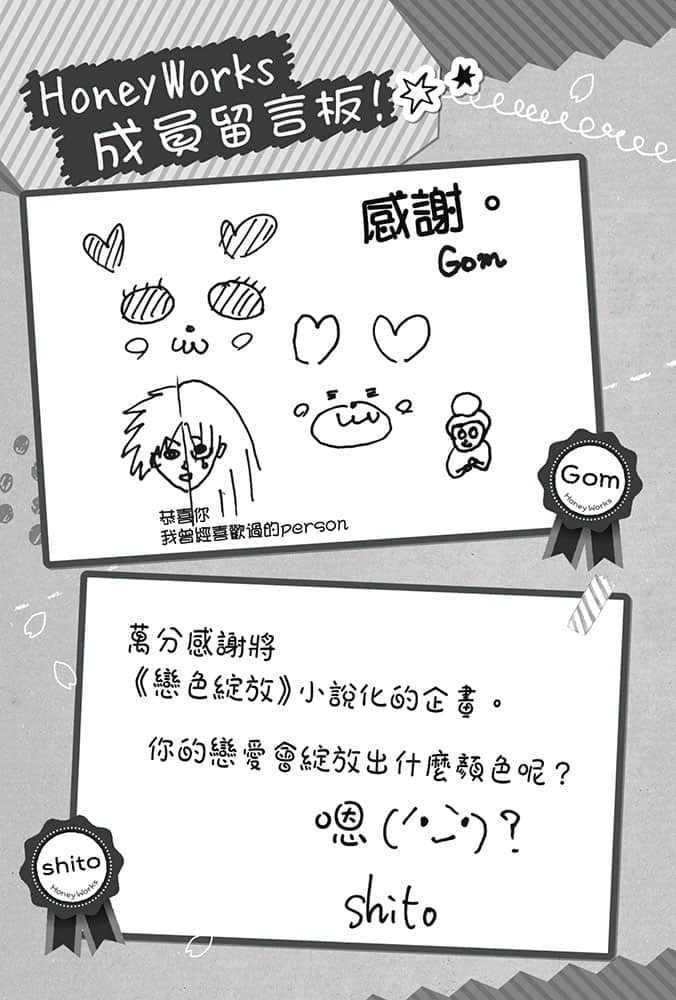 HoneyWorks
成員留言板!
感謝。
Gom
恭喜你
我曾經喜歡過的person
Gom
HoneyWorks
萬分感謝將
《戀色綻放》小說化的企畫。
你的戀愛會綻放出什麼顏色呢？
嗯(´•ᴗ•`)?
shito
shito
HoneyWorks